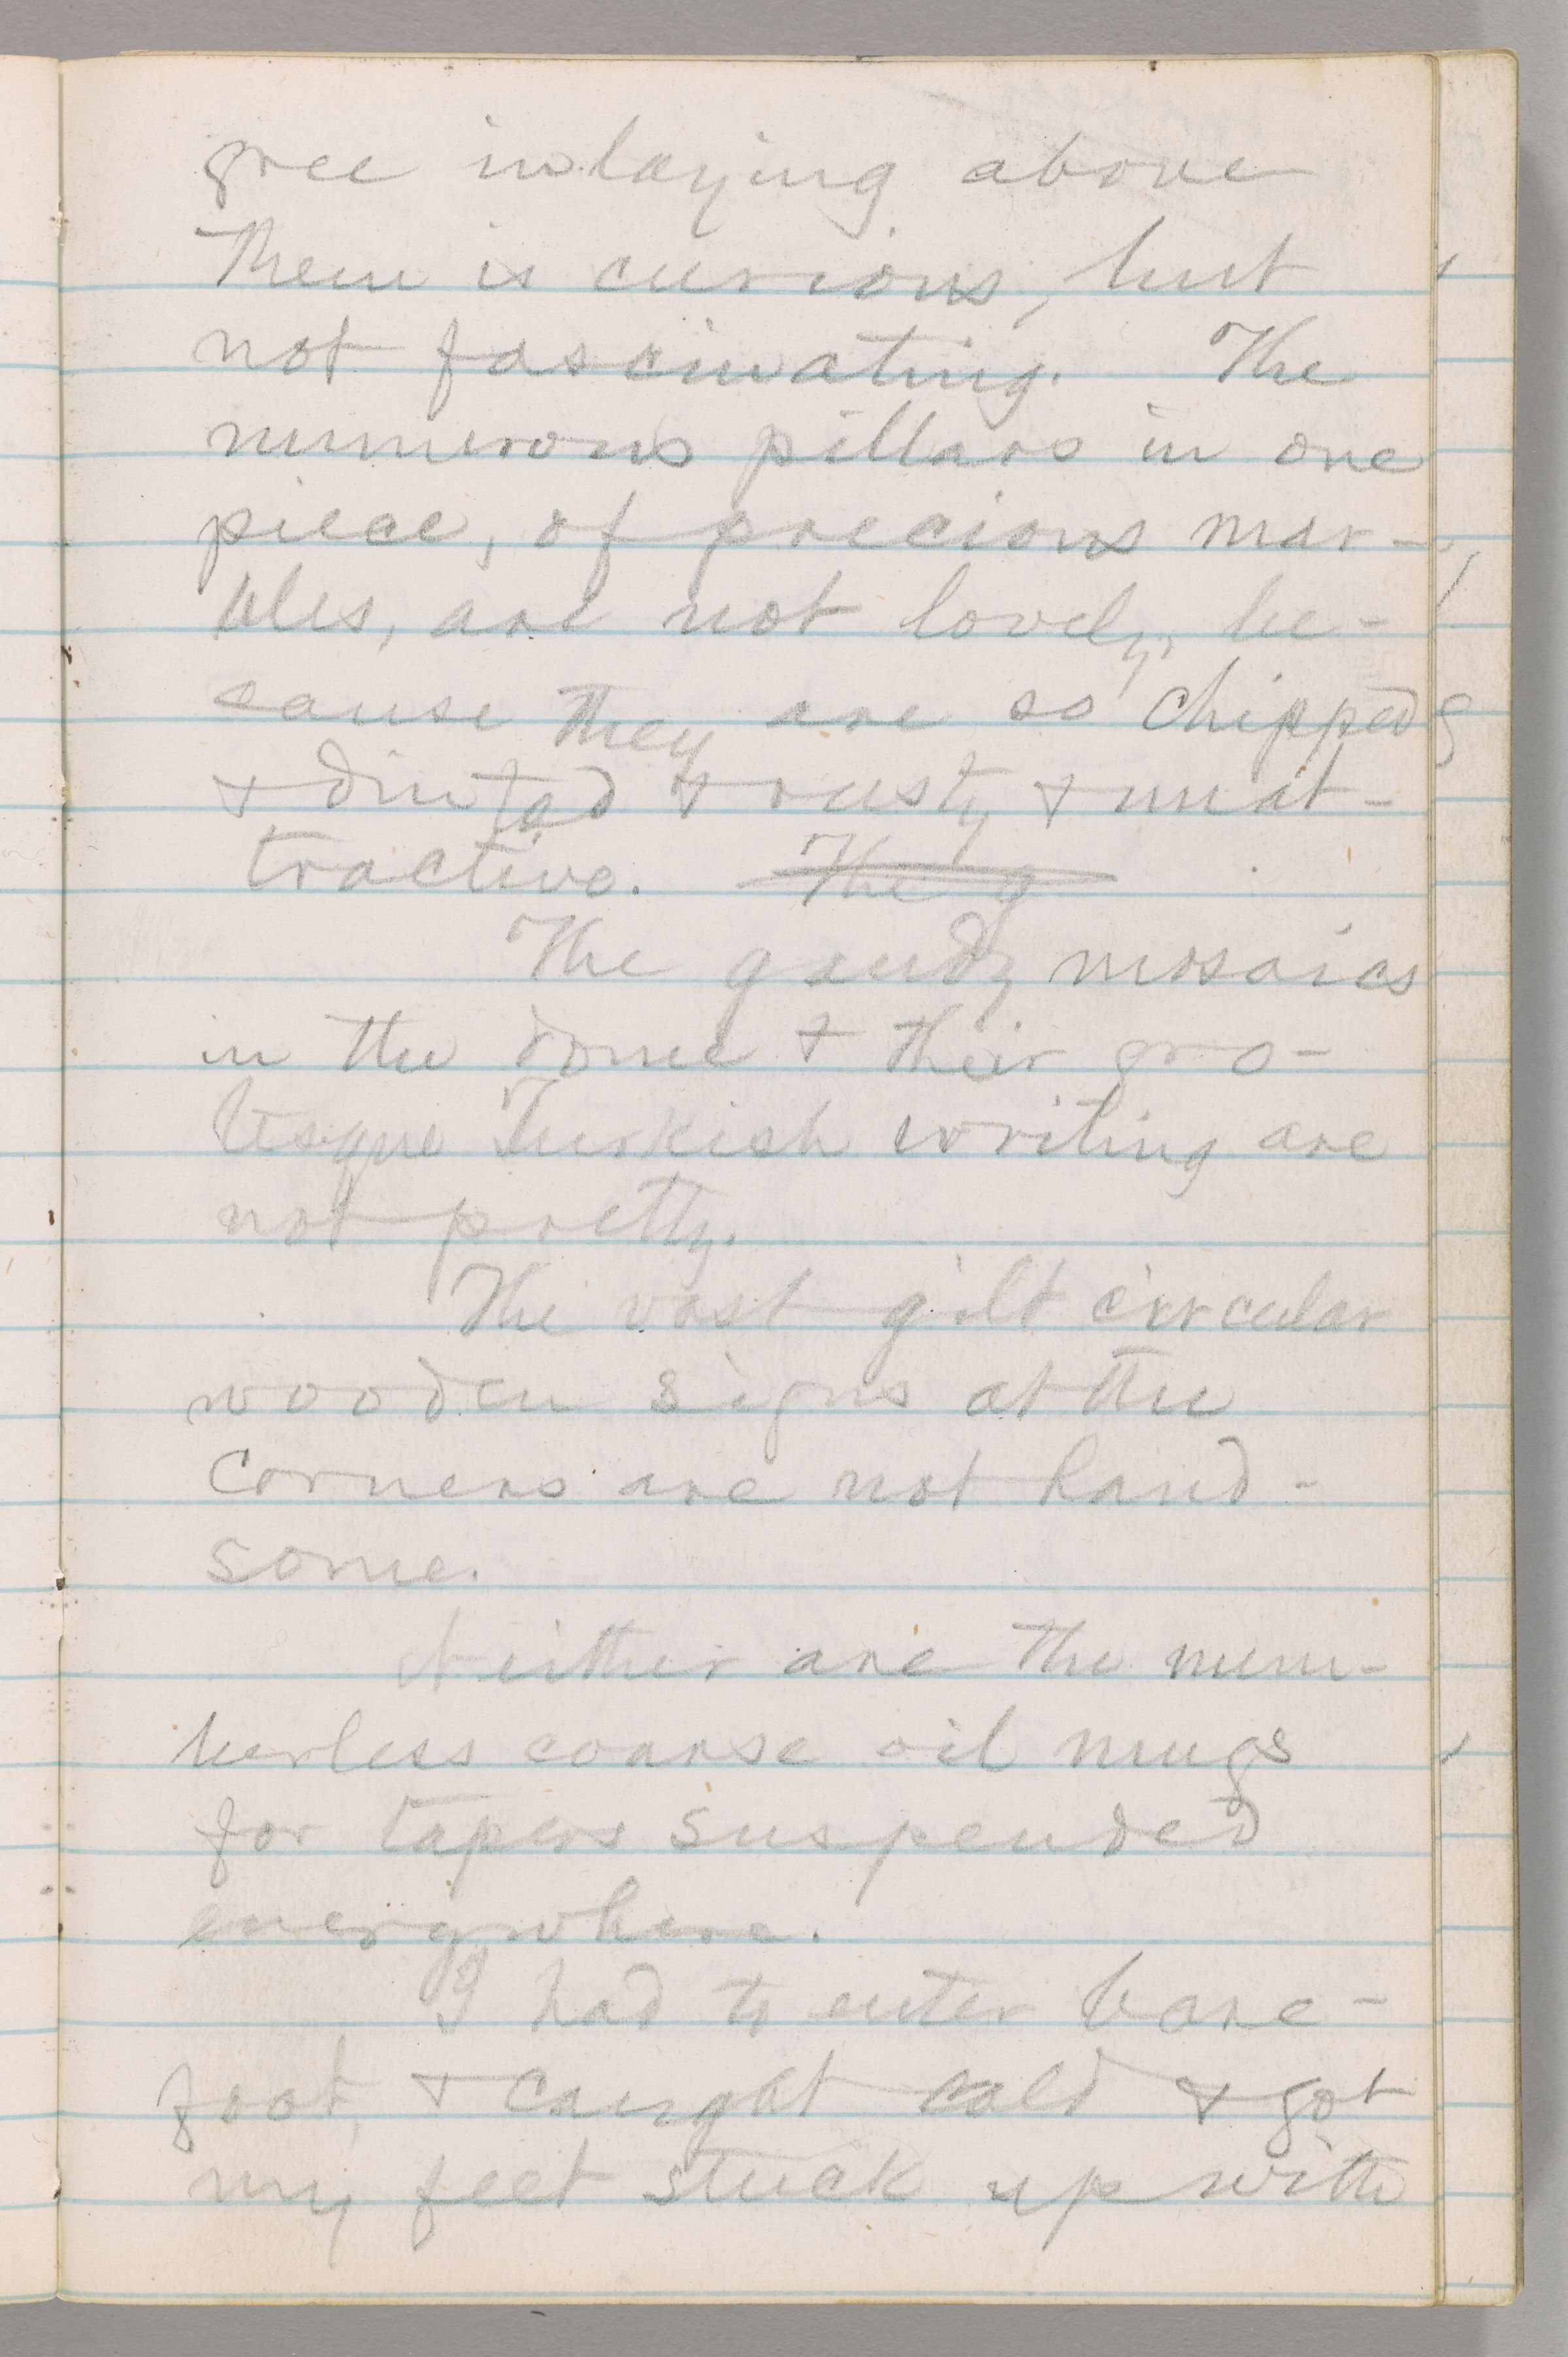 gree inlaying above
them is curious, but
not fascinating. The
numerous pillars in one
piece, of precious mar-
bles, are not lovely, be-
cause they are so chipped
& dinted & rusty & unat-
tractive. The g
The gaudy mosaics
in the dome & their gro-
tesque Turkish writing are
not pretty.
The vast gilt circular
wooden signs at the
corners are not hand-
some.
Neither are the num-
berless coarse oil mugs
for tapers suspended
everywhere.
I had to enter bare-
foot, & caught cold & got
my feet stuck up with